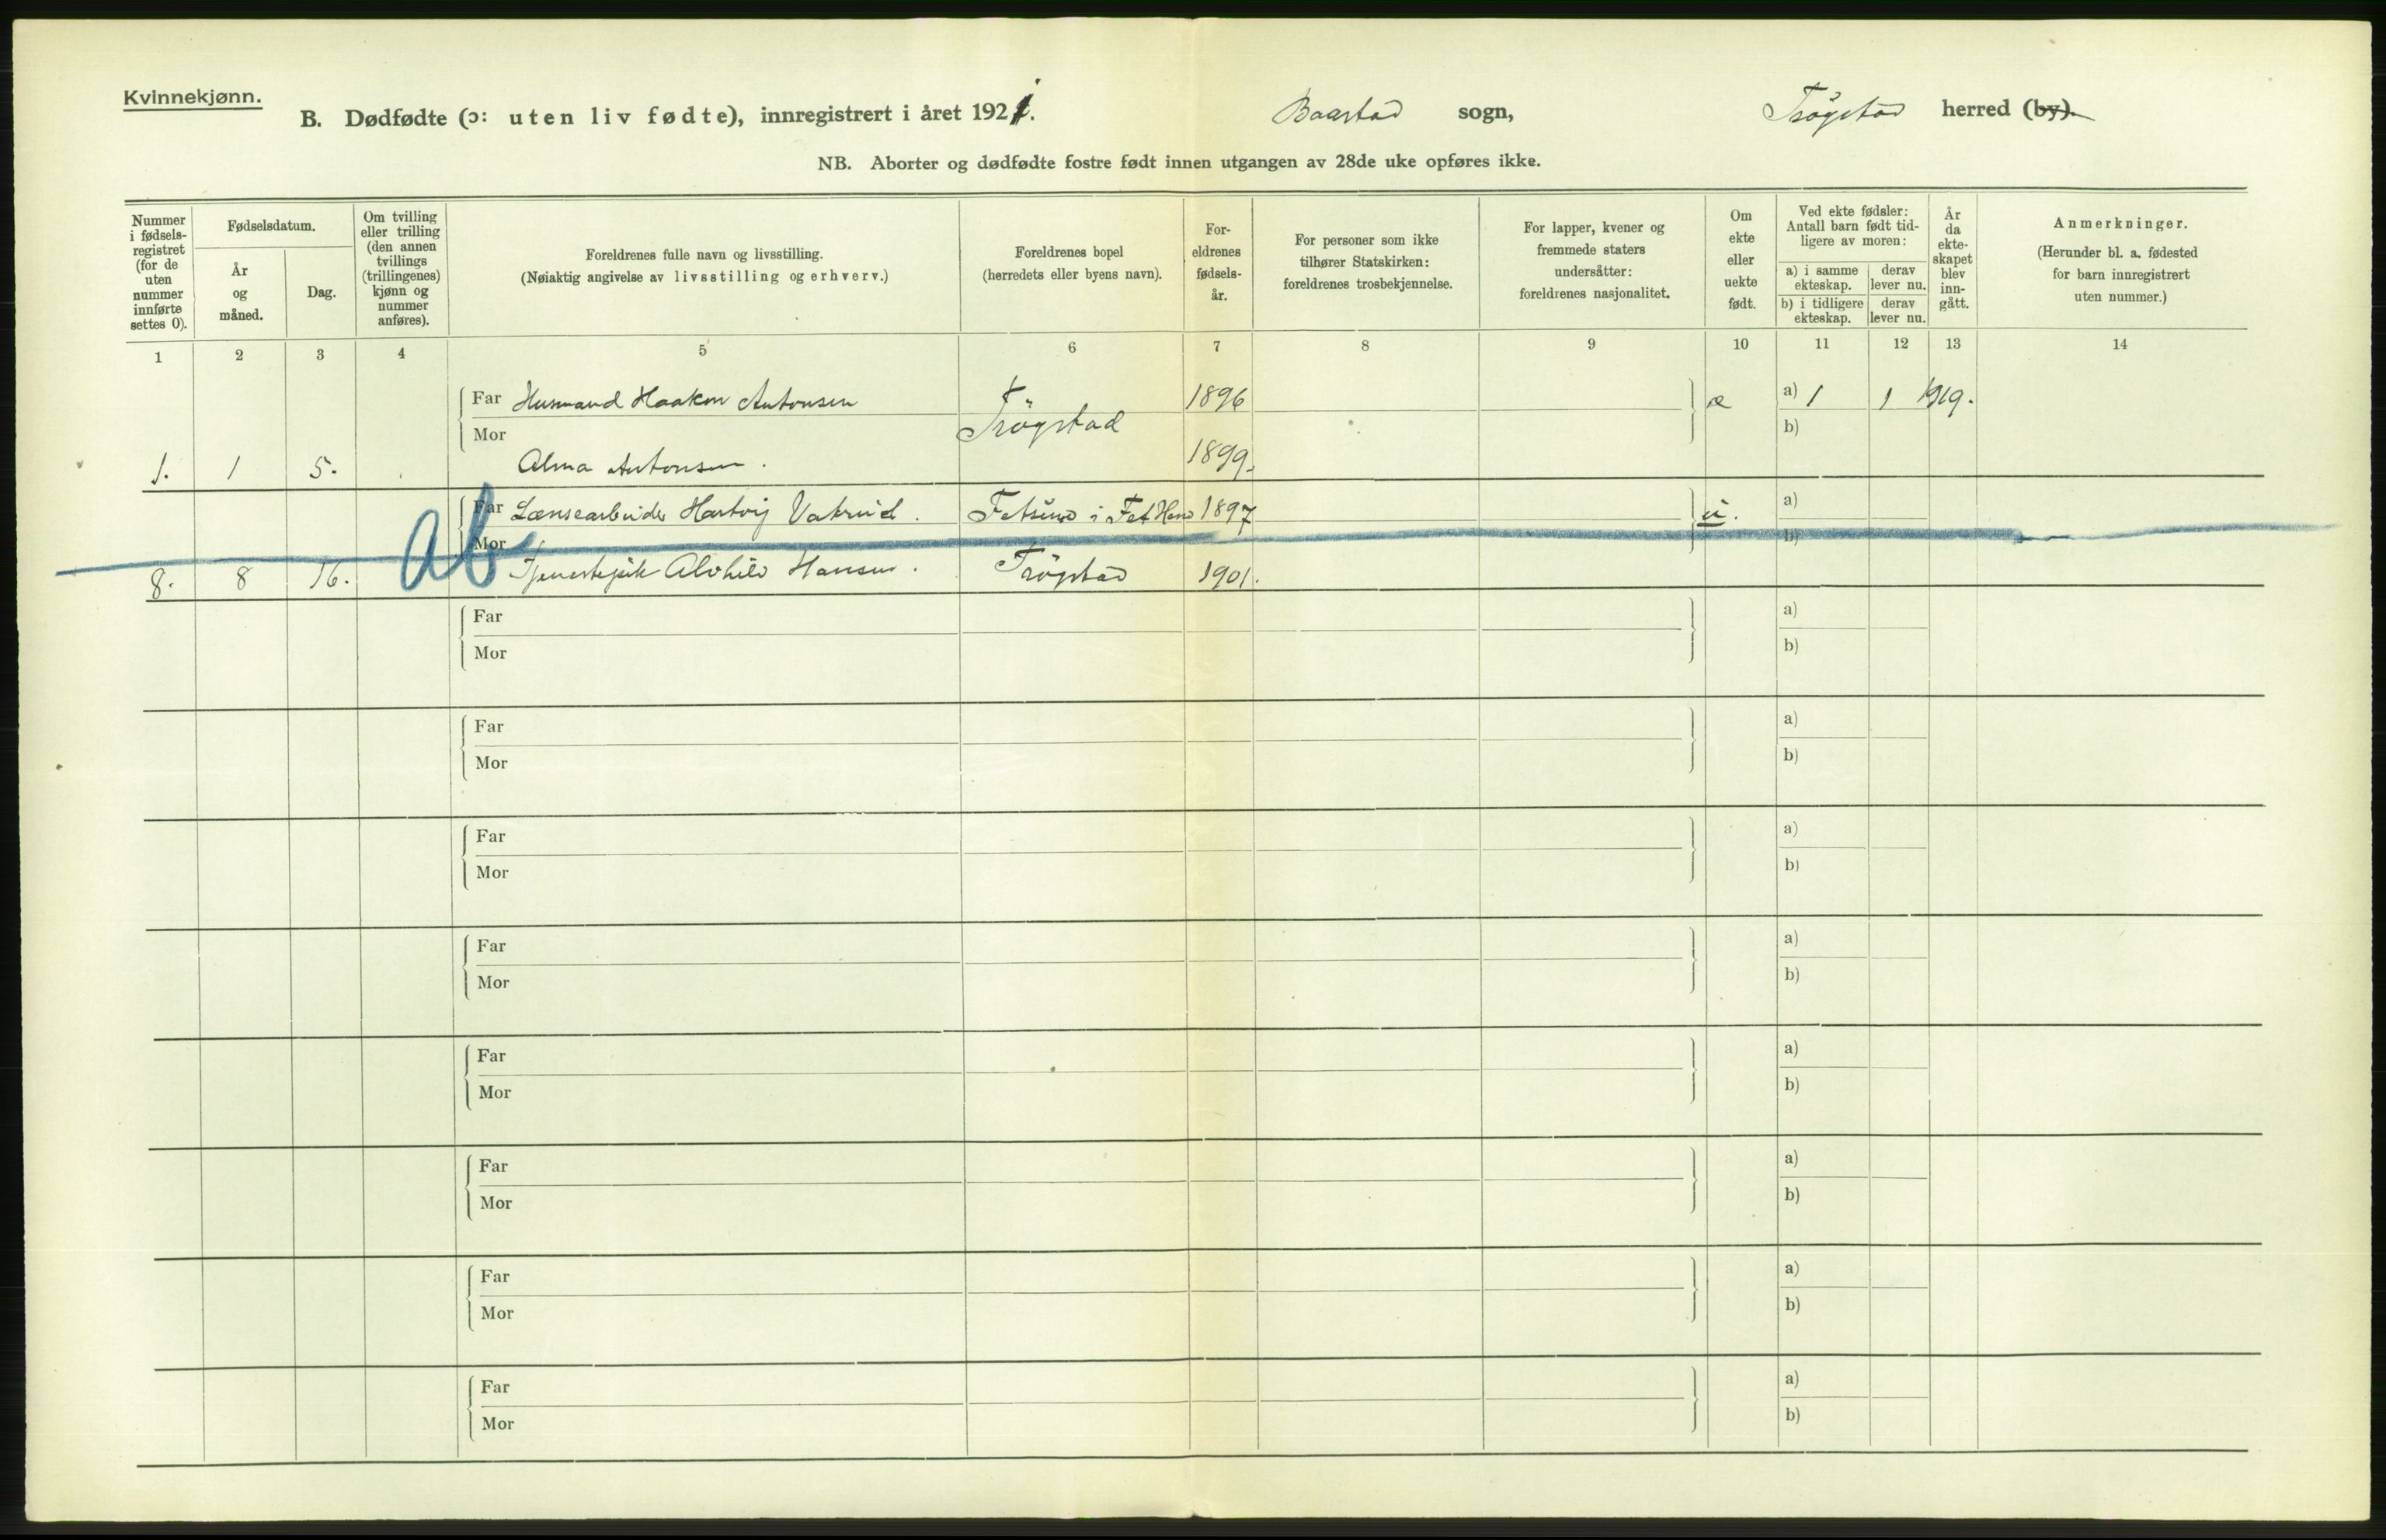 Kvinnekjønn.
B. Dødfødte (ɔ: uten liv fødte), innregistrert i året 1921. Baastad sogn, Trøgstad herred (by).
NB. Aborter og dødfødte fostre født innen utgangen av 28de uke opføres ikke.
Nummer i fødselsregistret (for de uten nummer innførte settes 0).
Fødselsdatum.
År og måned.
Dag.
Om tvilling eller trilling (den annen tvillings (trillingenes) kjønn og nummer anføres).
Foreldrenes fulle navn og livsstilling.
(Nøiaktig angivelse av livsstilling og erhverv.)
Foreldrenes bopel
(herredets eller byens navn).
Foreldrenes fødselsår.
For personer som ikke tilhører Statskirken: foreldrenes trosbekjennelse.
For lapper, kvener og fremmede staters undersåtter: foreldrenes nasjonalitet.
Om ekte eller uekte født.
Ved ekte fødsler: Antall barn født tidligere av moren:
a) i samme ekteskap. derav lever nu.
b) i tidligere ekteskap. derav lever nu.
År da ekteskapet blev inngått.
Anmerkninger.
(Herunder bl. a. fødested for barn innregistrert uten nummer.)
1 2 3 4 5 6 7 8 9 10 11 12 13 14
Far Husmand Haakon Antonsen Trøgstad 1896 æ a) 1 1 1919.
Mor b)
1. 1 5. Alma Antonsen. 1899.
Far Lænsearbeider Hartvig Vatrud. Fetsund i Fet Herred 1897 u. a)
Mor b)
8. 8 16. Ab Tjenestepike Alvhild Hansen. Trøgstad 1901.
Far a)
Mor b)
Far a)
Mor b)
Far a)
Mor b)
Far a)
Mor b)
Far a)
Mor b)
Far a)
Mor b)
Far a)
Mor b)
Far a)
Mor b)